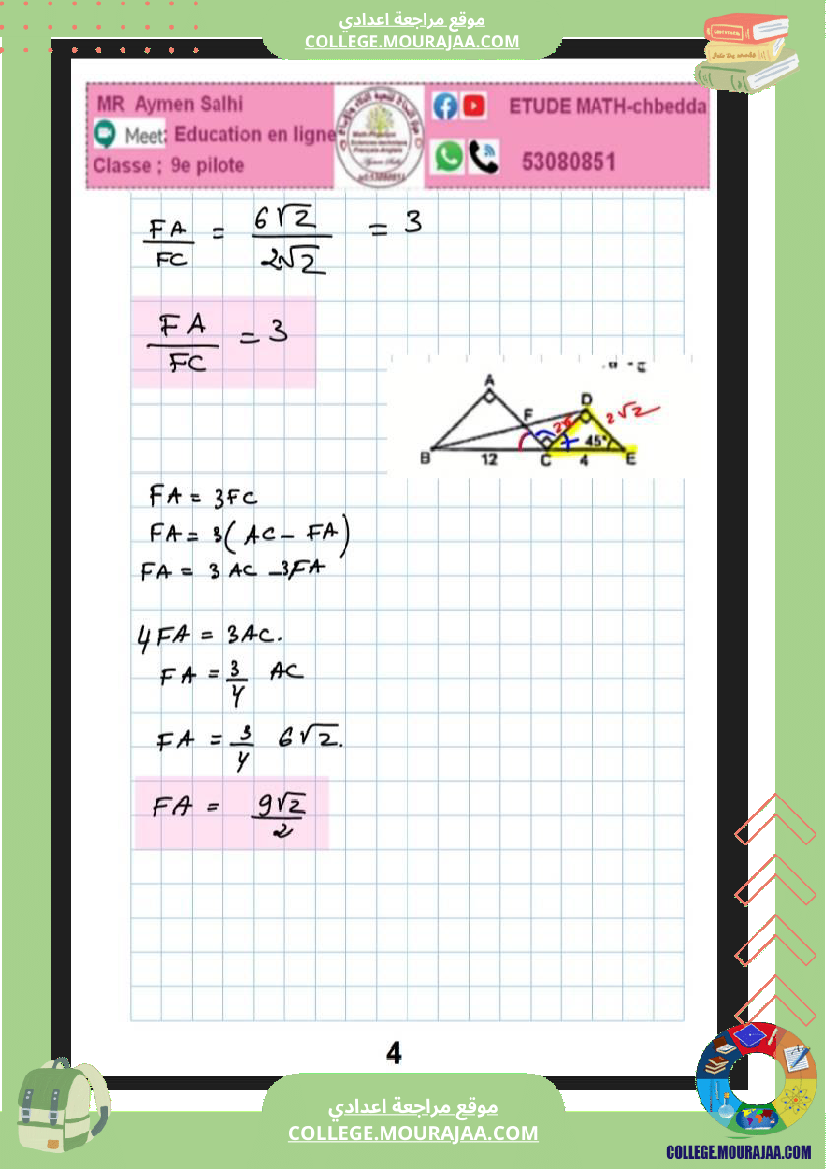 موقع مراجعة اعدادي
COLLEGE.MOURAJAA.COM
MR Aymen Salhi
Meet: Education en ligne
Classe ; 9e pilote
ETUDE MATH-chbedda
53080851
FA/FC = 6√2/2√2 = 3
FA/FC = 3
A
D
2√2
F
45°
B
12
C
4
E
FA = 3FC
FA = 3(AC - FA)
FA = 3AC - 3FA
4FA = 3AC.
FA = 3/4 AC
FA = 3/4 6√2.
FA = 9√2/2
4
موقع مراجعة اعدادي
COLLEGE.MOURAJAA.COM
COLLEGE.MOURAJAA.COM